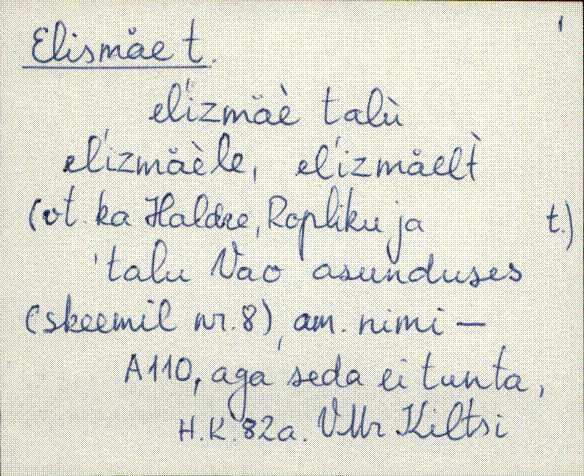 1
Elismäe t.
eĺizmäè talù
eĺizmäèle, eĺizmäelt̀
(vt. ka Haldre, Ropliku ja t.)
'talu Vao asunduses
(skeemil nr. 8), am. nimi —
A110, aga seda ei tunta,
H.K. 82a. VMr Kiltsi